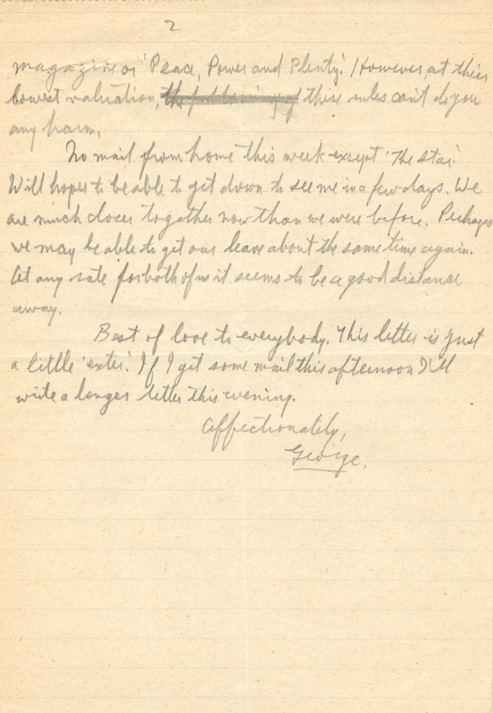 2
magazine or 'Peace, Power and Plenty.' However, at their
lowest valuation, the following of these rules can't do you
any harm.
No mail from home this week except 'The Star.'
Will hopes to be able to get down to see me in a few days. We
are much closer together now than we were before. Perhaps
we may be able to get our leave about the same time again.
At any rate for both of us it seems to be a good distance
away.
Best of love to everybody. This letter is just
a little 'extra'. If I get some mail this afternoon I'll
write a longer letter this evening.
Affectionately,
George.